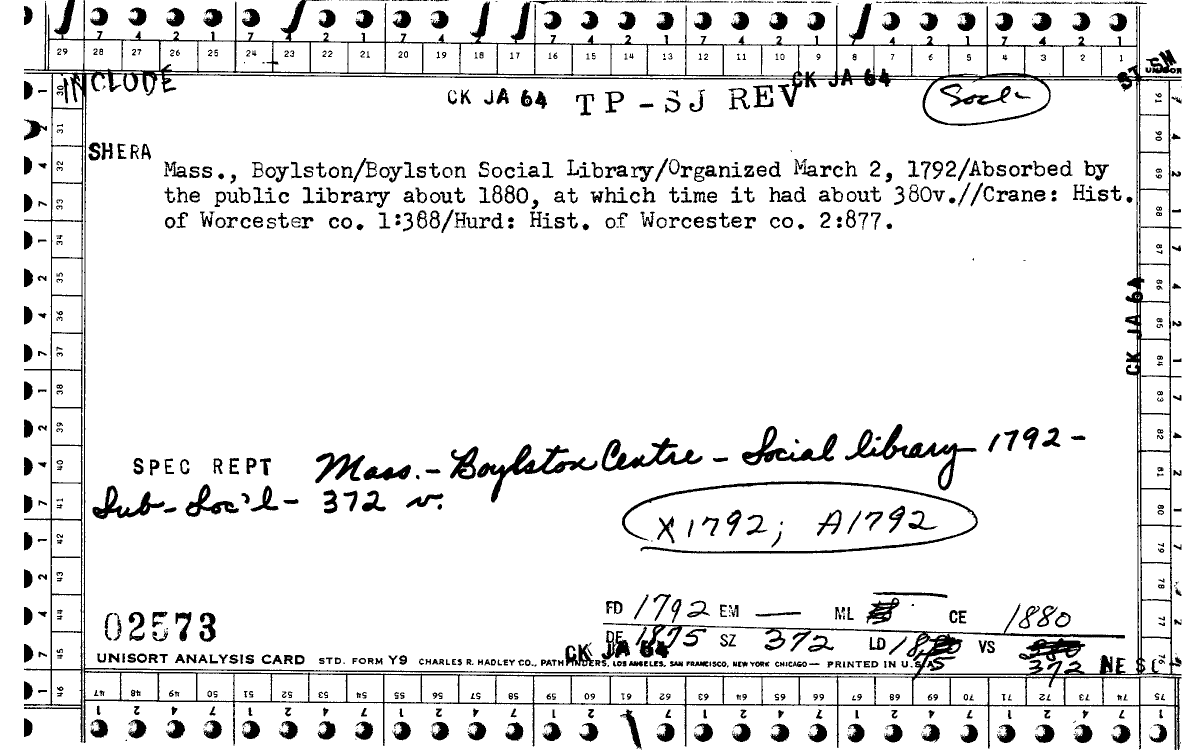 7 4 2 1 7 4 2 1 7 4 2 1 7 4 2 1 7 4 2 1 7 4 2 1 7 4 2 1
29 28 27 26 25 24 23 22 21 20 19 18 17 16 15 14 13 12 11 10 9 8 7 6 5 4 3 2 1
INCLUDE
CK JA 64 TP-SJ REV CK JA 64 Socl
SHERA
Mass., Boylston/Boylston Social Library/Organized March 2, 1792/Absorbed by
the public library about 1880, at which time it had about 380v.//Crane: Hist.
of Worcester co. 1:388/Hurd: Hist. of Worcester co. 2:877.
CK JA 64
SPEC REPT Mass. - Boylston Centre - Social library 1792 -
Sub - Soc'l - 372 v.
X1792; A1792
FD 1792 EM — ML CE 1880
02573
DE 1875 SZ 372 LD VS 372 NE SC
CK JA 64
UNISORT ANALYSIS CARD STD. FORM Y9 CHARLES R. HADLEY CO., PATHFINDERS, LOS ANGELES, SAN FRANCISCO, NEW YORK CHICAGO — PRINTED IN U.S.A.
30 31 32 33 34 35 36 37 38 39 40 41 42 43 44 45 46
47 48 49 50 51 52 53 54 55 56 57 58 59 60 61 62 63 64 65 66 67 68 69 70 71 72 73 74 75
76 77 78 79 80 81 82 83 84 85 86 87 88 89 90 91